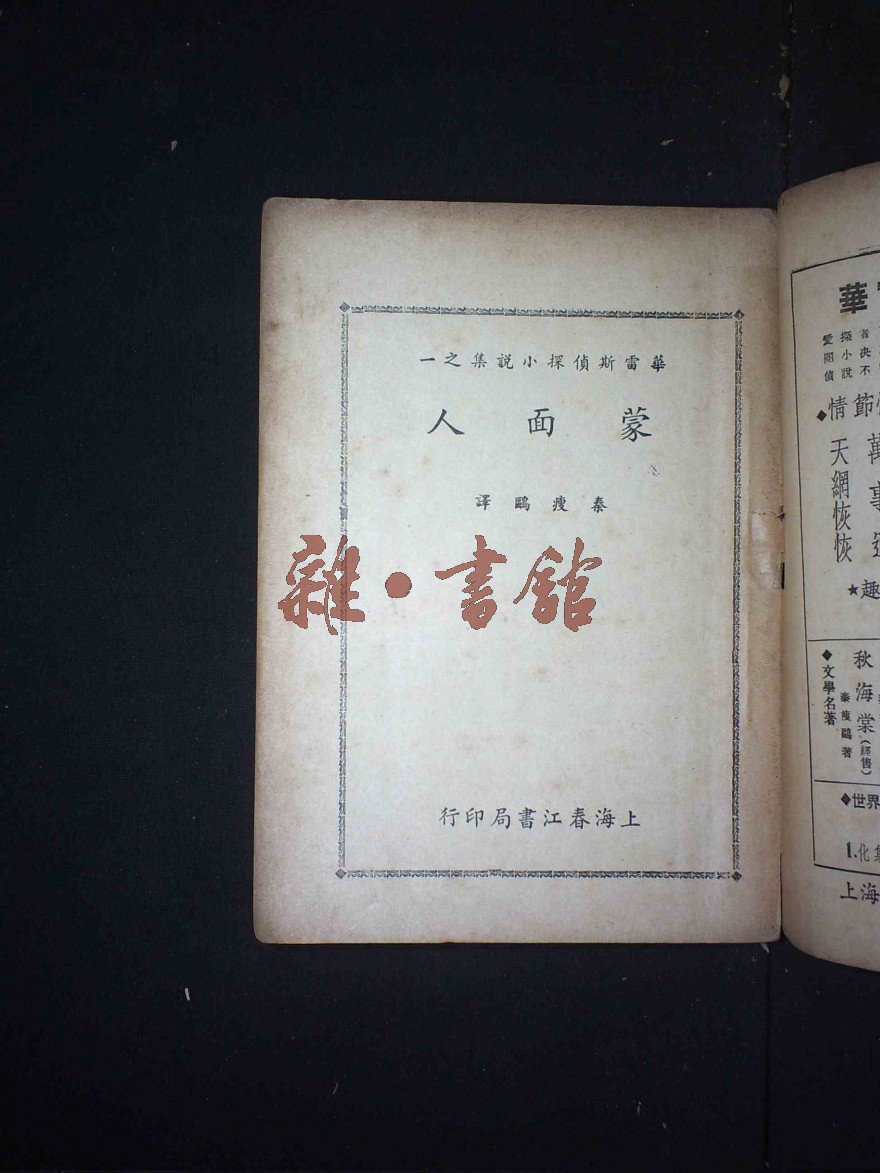 華雷斯偵探小説集之一
蒙面人
秦瘦鷗譯
雜•書館
上海春江書局印行
華
愛閱偵
探小說
者决不
◆情節
萬事
天網恢恢
★趣
◆文學名著
秋海棠(經售)
秦瘦鷗著
◆世界
1.化
上海